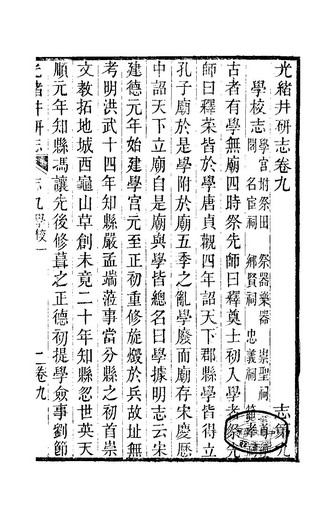 光緒井研志卷九　志第九
學校志　學宮　附祭田　祭器樂器　崇聖祠
名宦祠　鄉賢祠　忠義祠
古者有學無廟四時祭先師曰釋奠士初入學者祭先
師曰釋菜皆於學唐貞觀四年詔天下郡縣學皆得立
孔子廟於是學附於廟五季之亂學廢而廟存宋慶厯
中詔天下立廟自是廟與學皆總名曰學據明志云宋
建德元年始建學宮元至正初重修旋燬於兵故址無
考明洪武十四年知縣嚴孟端蒞事當分縣之初首崇
文教拓地城西龜山草創未竟二十年知縣忽世英天
順元年知縣馮讓先後修葺之正德初提學僉事劉節
光緒井研志　志九學校一　二卷九